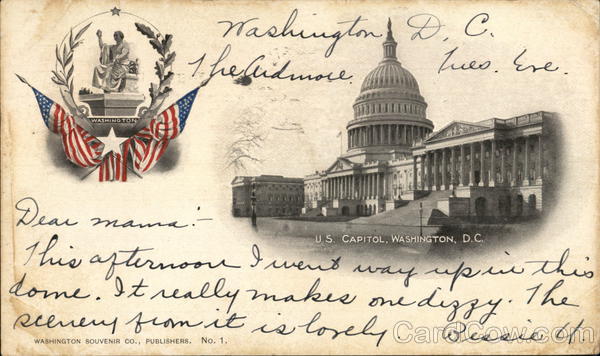 Washington D. C.
The Ardmore. Tues. Eve.
WASHINGTON
U. S. CAPITOL, WASHINGTON, D. C.
Dear mama:-
This afternoon I went way up in this
dome. It really makes one dizzy. The
scenery from it is lovely Bessie
WASHINGTON SOUVENIR CO., PUBLISHERS. No. 1.
CardCow.com